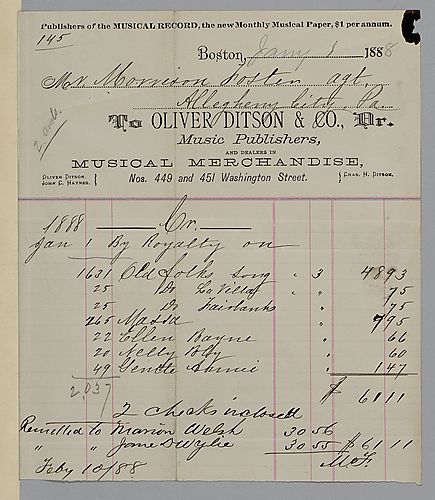 Publishers of the MUSICAL RECORD, the new Monthly Musical Paper, $1 per annum.
145
Boston, Jany 1 1888
Mr Morrison Foster agt,
Allegheny City, Pa.
To OLIVER DITSON & CO., Dr.
Music Publishers,
AND DEALERS IN
MUSICAL MERCHANDISE,
OLIVER DITSON. JOHN C. HAYNES. } Nos. 449 and 451 Washington Street. { CHAS. H. DITSON.
1888 Cr.
Jan 1 By Royalty on
1631 Old folks song " 3 48 93
25 Do La Villa " " 75
25 Do Fairbanks " " 75
265 Massa " 7 95
22 Ellen Bayne " 66
20 Nelly Bly " 60
49 Gentle Annie " 1 47
2,037
$ 61 11
2 checks inclosed
Remitted to Marion Welsh 30 56
" " Jane D Wylie 30 55 $61 11
Feby 10/88 McF